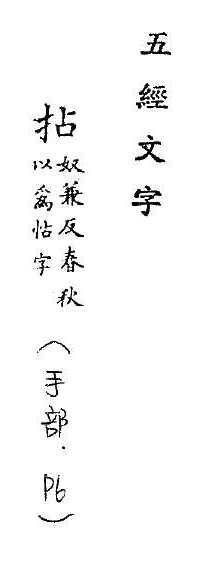 五經文字
拈
奴兼反春秋
以為怗字
（手部．P6）